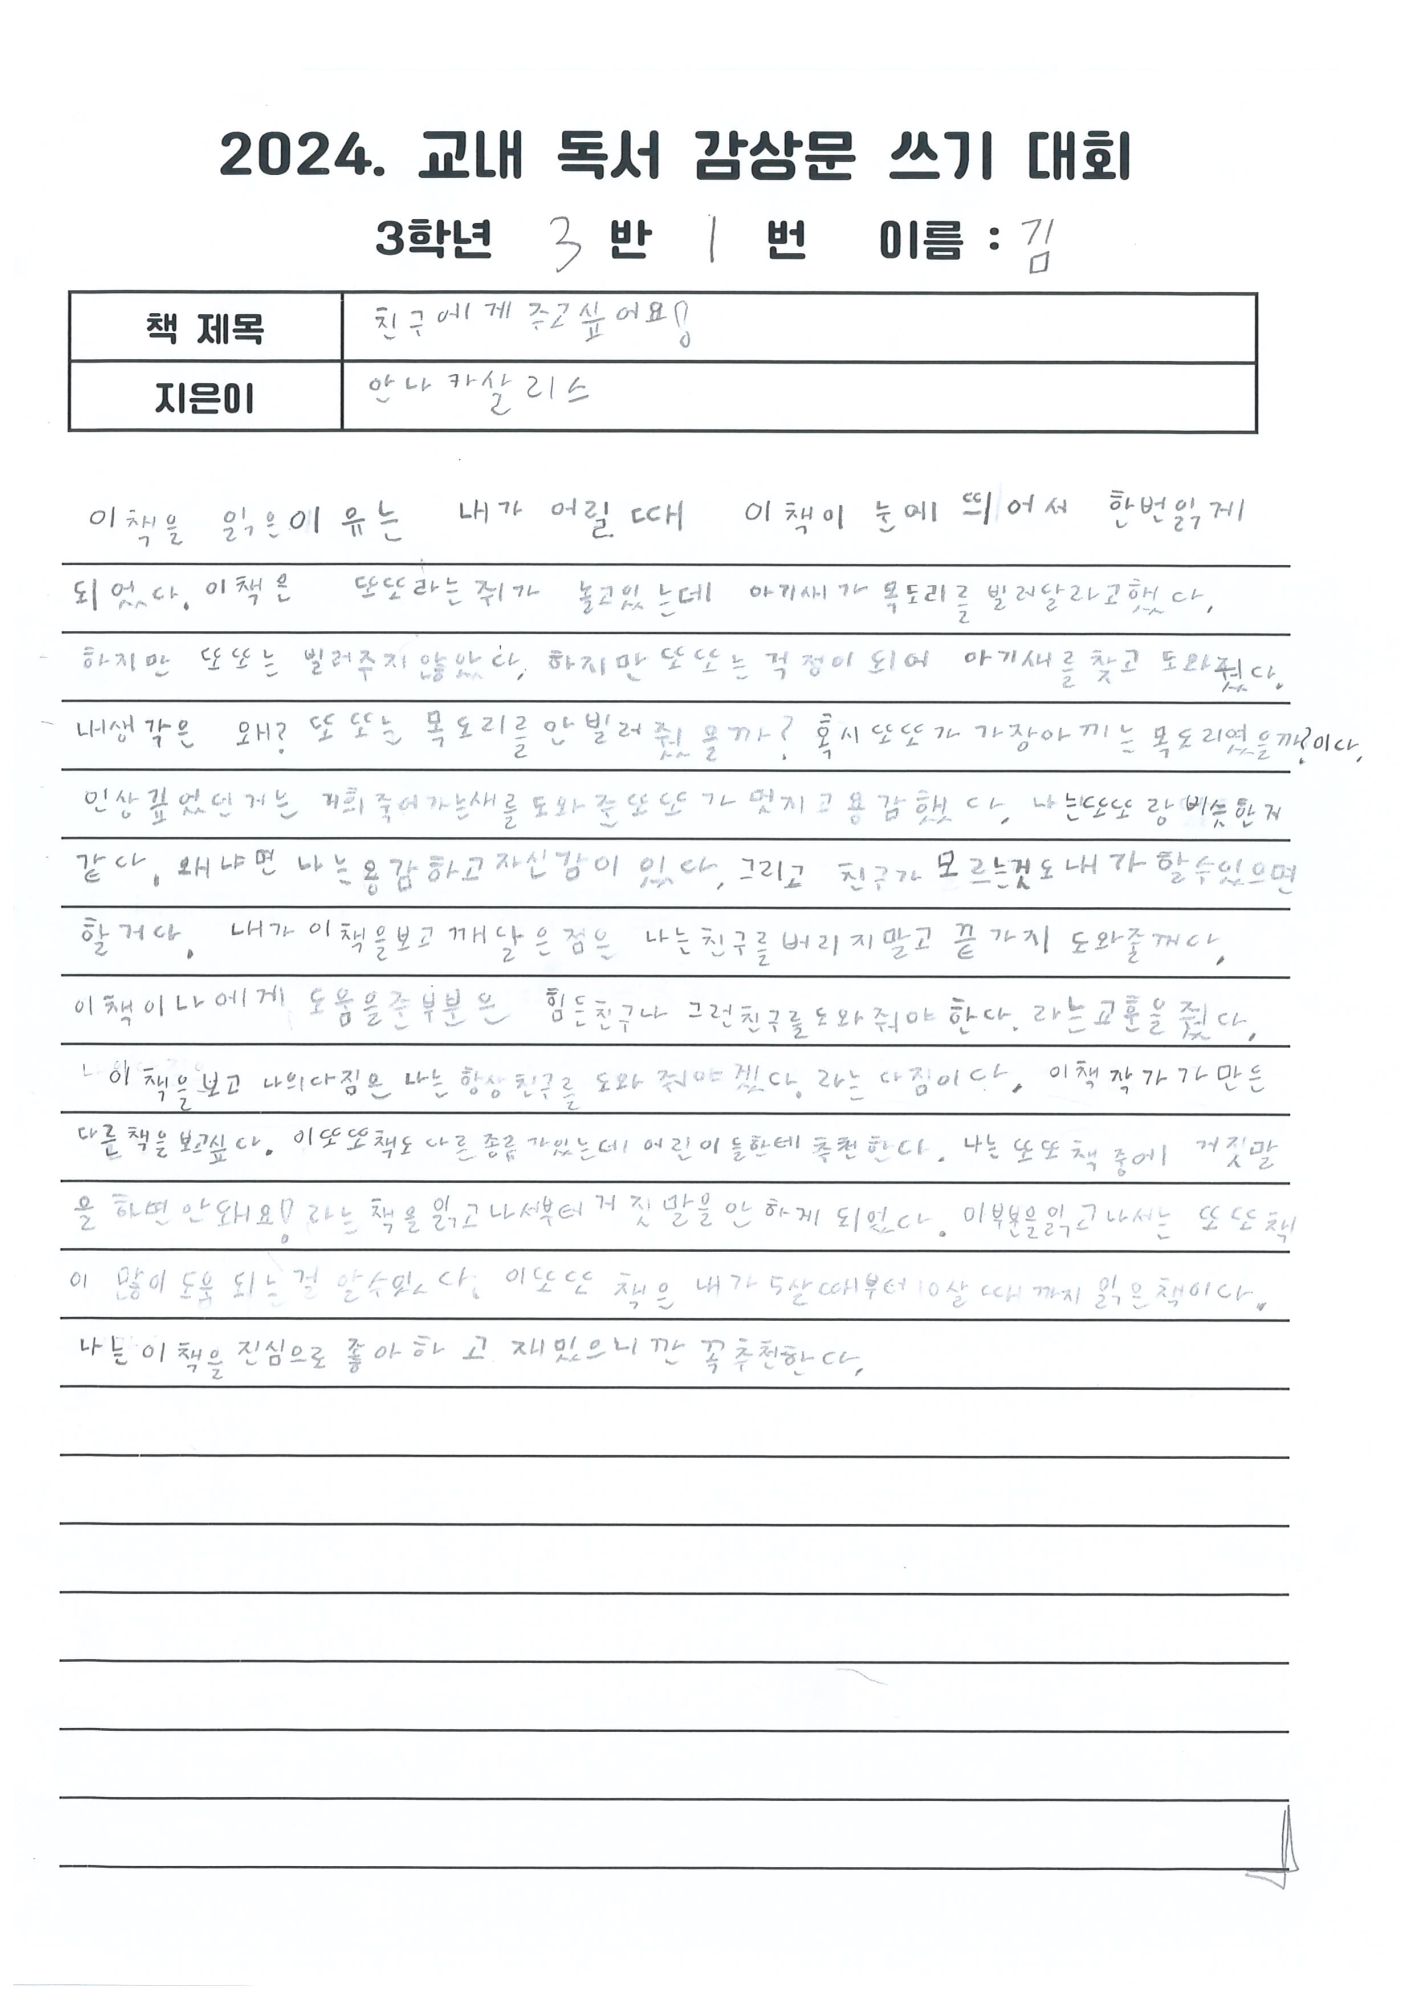 2024. 교내 독서 감상문 쓰기 대회
3학년 3 반 1 번 이름 : 김
책 제목 친구에게 주고싶어요!
지은이 안나 카살리스
이책을 읽은이유는 내가 어릴때 이책이 눈에 띄어서 한번읽게
되었다. 이책은 또또라는쥐가 놀고있는데 아기새가 목도리를빌려달라고했다.
하지만 또또는 빌려주지않았다. 하지만또또는걱정이되어 아기새를찾고 도와줬다.
내생각은 왜? 또또는 목도리를안빌려줬을까? 혹시또또가 가장아끼는목도리였을까?이다.
인상깊었던거는 죽어가는새를도와준또또가멋지고용감했다. 나는또또랑비슷한거
같다. 왜냐면 나는용감하고자신감이 있다. 그리고 친구가 모르는것도내가할수있으면
할거다. 내가이책을보고깨달은점은 나는친구를버리지말고 끝가지 도와줄꺼다.
이책이나에게 도움을준부분은 힘든친구나 그런친구를도와줘야한다. 라는교훈을줬다.
이책을보고 나의다짐은 나는항상친구를 도와줘야겠다. 라는 다짐이다. 이책작가가만든
다른책을보고싶다. 이또또책도다른종류가있는데어린이들한테추천한다. 나는또또책중에 거짓말
을하면안돼요! 라는책을읽고나서부터거짓말을안하게되었다. 이부분을읽고나서는 또또책
이 많이도움되는걸 알수있다. 이또또 책은 내가5살때부터10살때까지읽은책이다.
나는이책을진심으로좋아하고재밌으니깐꼭추천한다.